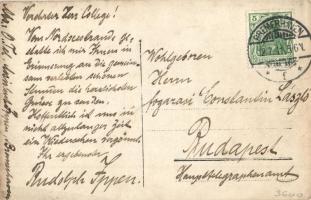 Verehrter Herr College!
Vom Nordseestrande ge-
statte ich mir Ihnen in
Erinnerung an die gemein-
sam verlebten schönen
Stunden die herzlichsten
Grüsse zu senden.
Hoffentlich ist uns in
nicht allzulanger Zeit
ein Wiedersehen vergönnt.
Ihr ergebener
Rudolph Ippen.
Wohlgeboren
Herrn
fogarasi Constantin László
Budapest
Haupttelegraphenamt
BREMERHAVEN
5
3600